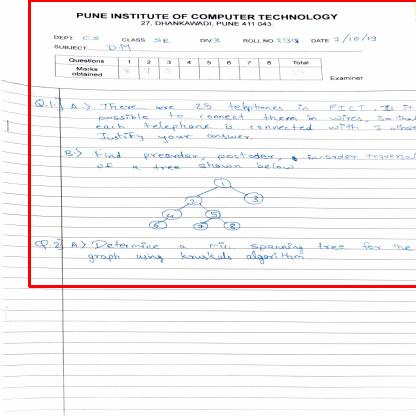 PUNE INSTITUTE OF COMPUTER TECHNOLOGY
27, DHANKAWADI, PUNE 411 043.
DEPT C.S CLASS SE DIV 3 ROLL NO. 21318 DATE 7/10/19
SUBJECT D.M.
Questions 1 2 3 4 5 6 7 8 Total
Marks obtained
Examiner
Q.1) A.) There are 25 telephones in PICT. Is it
possible to connect them in wires, so that
each telephone is connected with 7 other
Justify your answer.
B.) Find preorder, postorder, & in-order traversal
of a tree shown below
1
2 3
4 5
6 7 8
Q.2 A.) Determine a min. spanning tree for the
graph using kruskals algorithm.